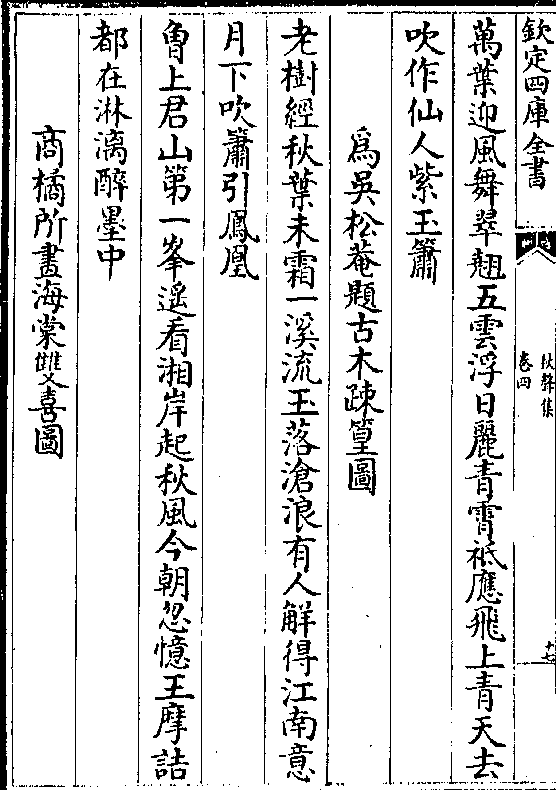 欽定四庫全書
秋聲集
卷四
十七
萬葉迎風舞翠翹五雲浮日麗青霄祗應飛上青天去
吹作仙人紫玉簫
爲吳松菴題古木疎篁圖
老樹經秋葉未霜一溪流玉落滄浪有人觧得江南意
月下吹簫引鳳凰
曾上君山第一峯遥看湘岸起秋風今朝忽憶王摩詰
都在淋漓醉墨中
商橘所畫海棠雙喜圖